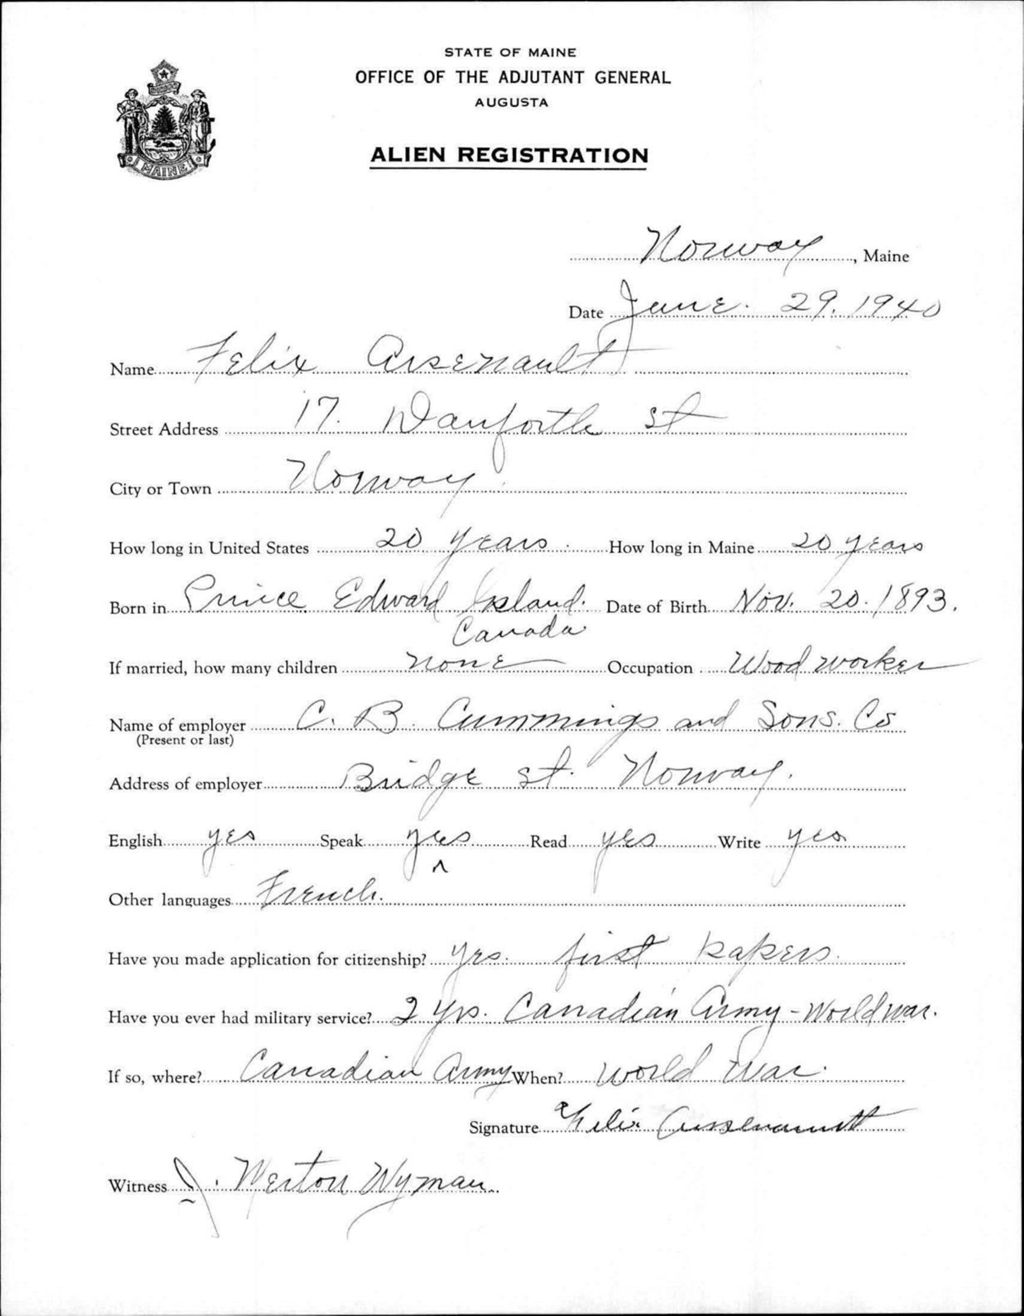 STATE OF MAINE
OFFICE OF THE ADJUTANT GENERAL
AUGUSTA
ALIEN REGISTRATION
MAINE
Norway, Maine
Date June. 29. 1940
Name Felix Arsenault
Street Address 17. Danforth St
City or Town Norway.
How long in United States 20 years. How long in Maine 20 years
Born in Prince Edward Island. Date of Birth Nov. 20. 1893.
Canada
If married, how many children none Occupation Wood worker
Name of employer C. B. Cummings and Sons. Co
(Present or last)
Address of employer Bridge St. Norway.
English yes Speak yes Read yes Write yes
^
Other languages French.
Have you made application for citizenship? yes. first papers.
Have you ever had military service? 2 yrs. Canadian Army - World war.
If so, where? Canadian Army When? World War.
Signature Felix Arsenault
Witness J. Merton Wyman